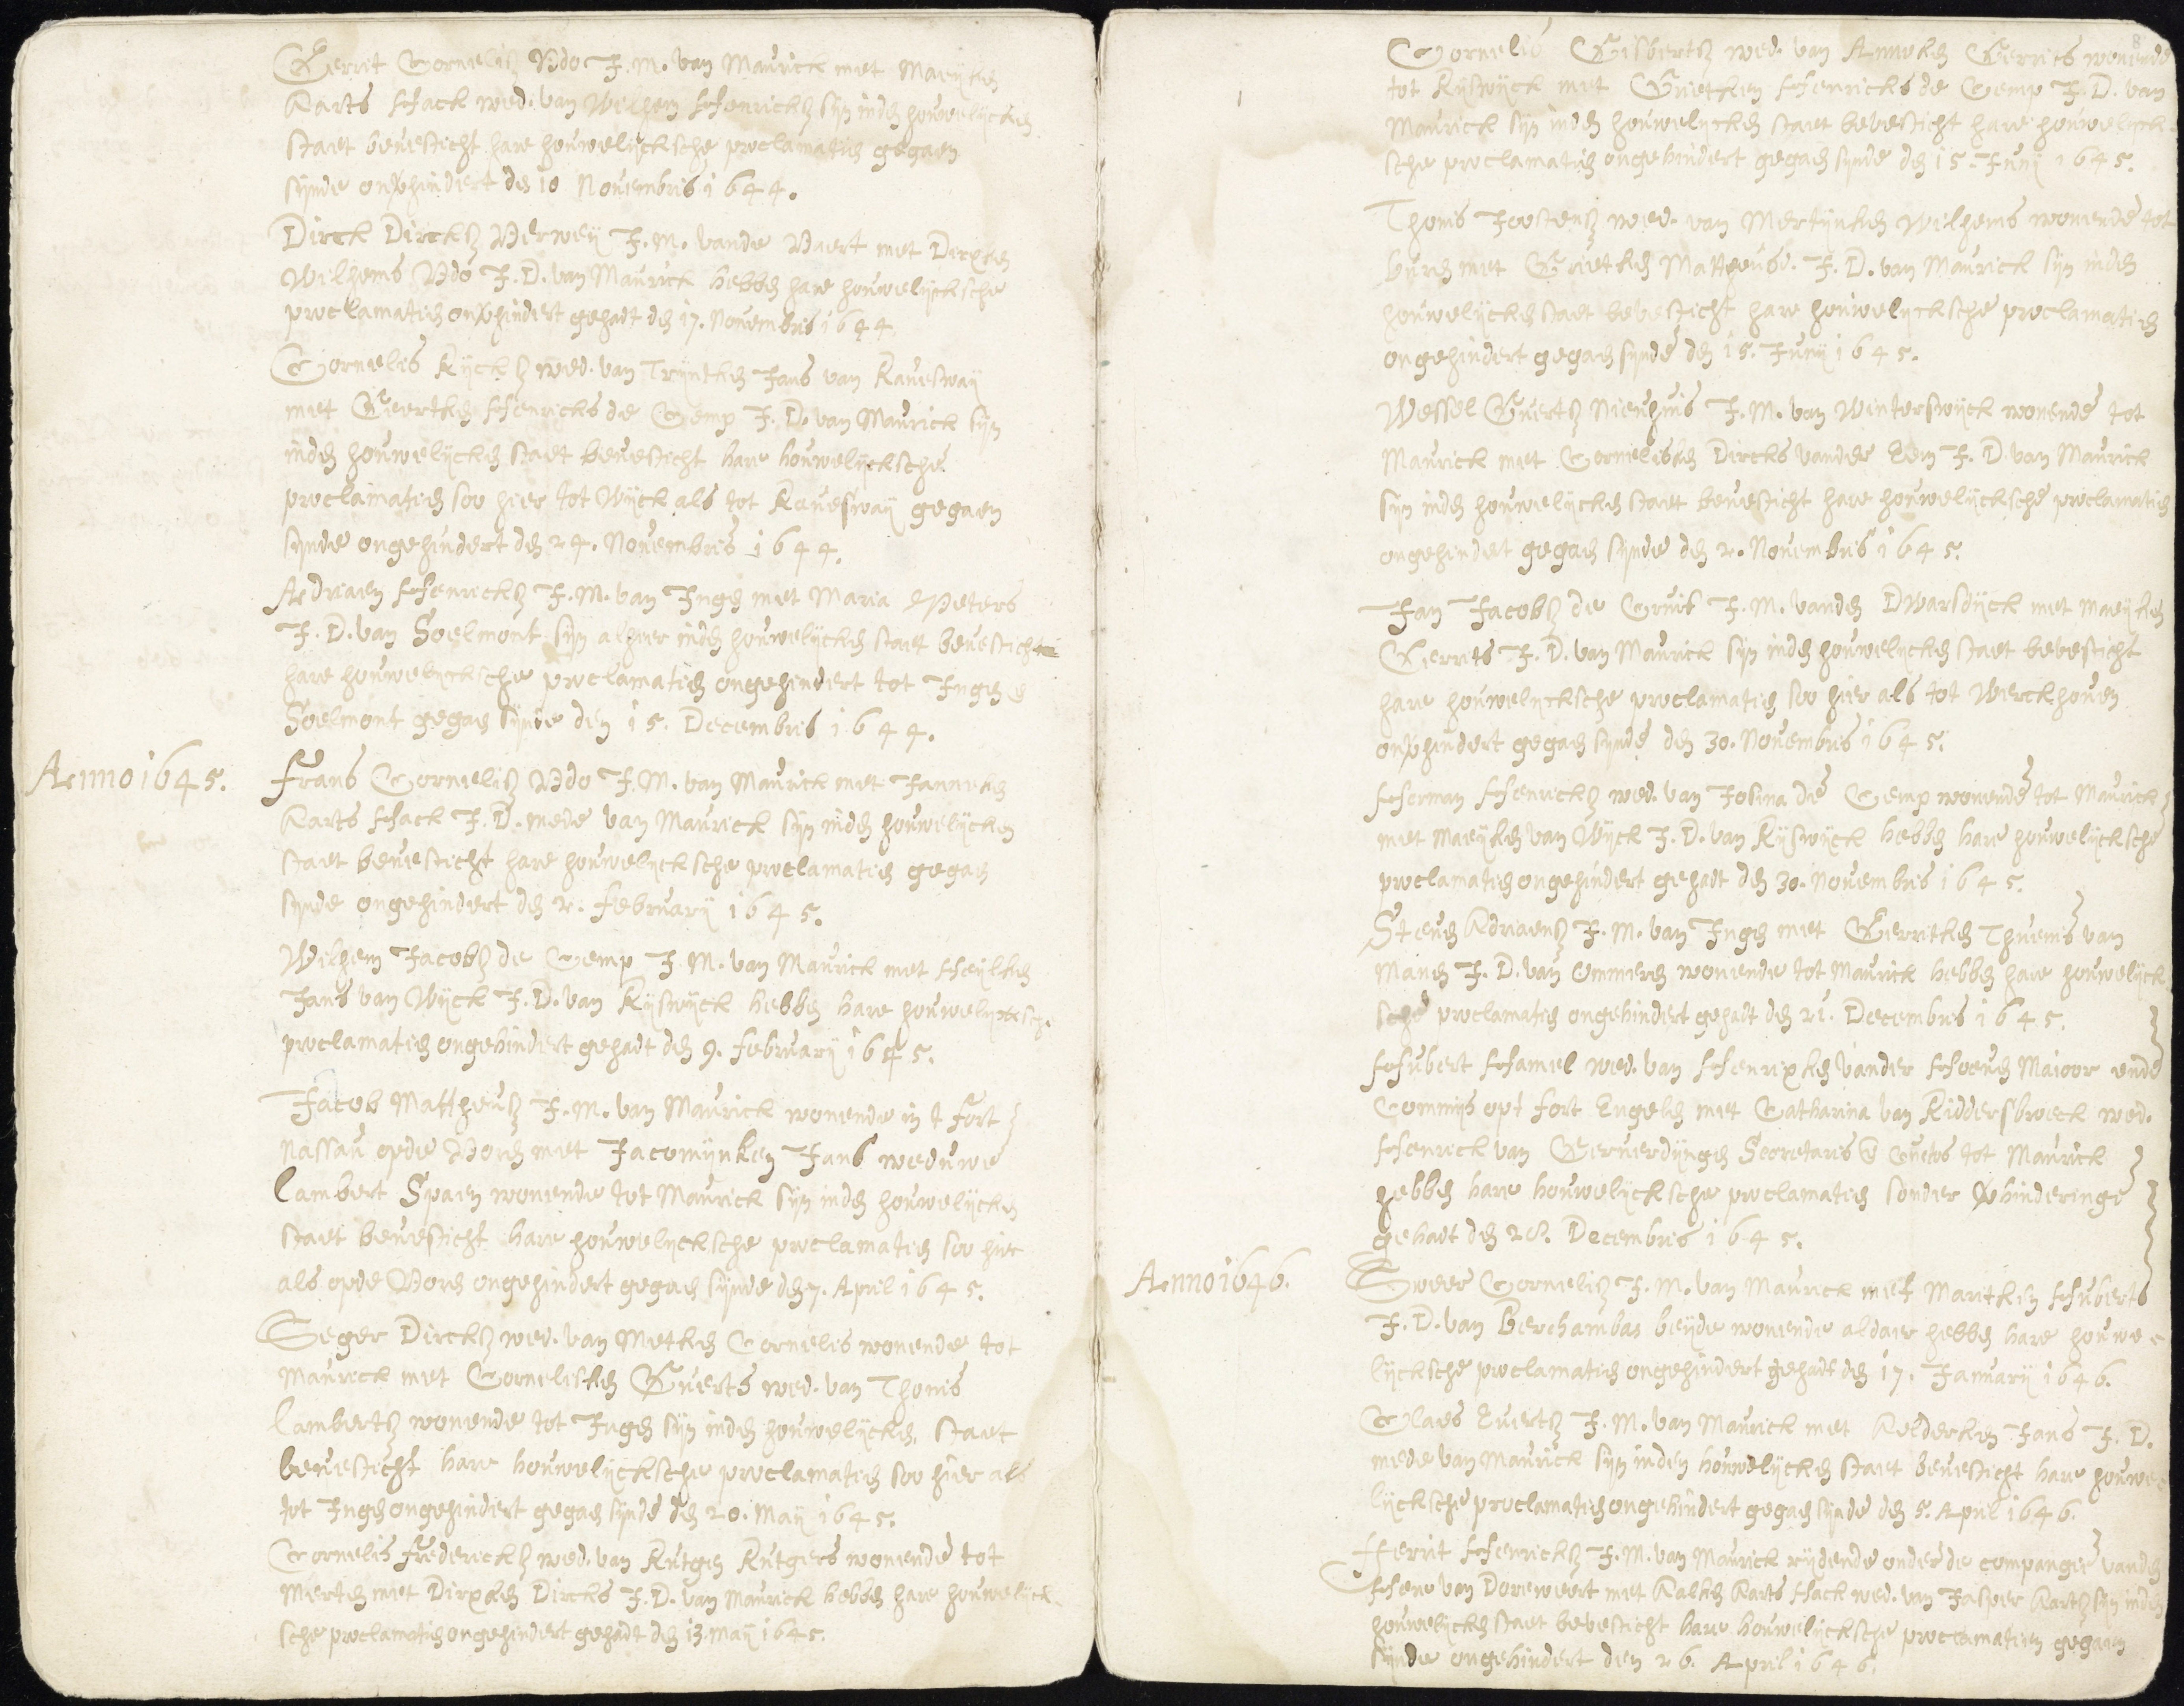 Gerrit Cornelisz Udo J. M. van Maurick met Maeijken
Aarts Hack wed. van Wilhem Henricksz sijn inden houwelijcken
staet bevesticht hare houwelijcksche proclamatien gegaen
sijnde onverhindert den 10 Novembris 1644.
Dirck Dircksz Verweij J. M. vande Vaert met Dirxken
Wilhems Udo J. D. van Maurick hebben hare houwelijcksche
proclamatien onverhindert gehadt den 17. Novembris 1644
Cornelis Rijcksz wed. van Trijntken Jans van Raveswaij
met Geertken Henricks de Gemp J. D. van Maurick sijn
inden houwelijcken staet bevesticht hare houwelijcksche
proclamatien soo hier tot Wijck als tot Raveswaij gegaen
sijnde ongehindert den 24. Novembris 1644.
Adriaen Henricksz J. M. van Ingen met Maria Peters
J. D. van Soelmont sijn alhier inden houwelijcken staet bevesticht
hare houwelijcksche proclamatien ongehindert tot Ingen &
Soelmont gegaen sijnde den 15. Decembris 1644.
Anno 1645.
Frans Cornelisz Udo J. M. van Maurick met Janneken
Aarts Hack J. D. mede van Maurick sijn inden houwelijcken
staet bevesticht hare houwelijcksche proclamatien gegaen
sijnde ongehindert den 2. februarij 1645.
Wilhem Jacobsz de Gemp J. M. van Maurick met Heijlken
Jans van Wijck J. D. van Rijswijck hebben hare houwelijcksche
proclamatien ongehindert gehadt den 9. februarij 1645.
Jacob Mattheusz J. M. van Maurick wonende in t fort
Nassau opde Voren met Jacomijnken Jans weduwe
Lambert Spaen wonende tot Maurick sijn inden houwelijcken
staet bevesticht hare houwelijcksche proclamatien soo hier
als opde Voren ongehindert gegaen sijnde den 7. April 1645.
Seger Dircksz wed. van Metken Cornelis wonende tot
Maurick met Cornelisken Guerts wed. van Thonis
Lambertsz wonende tot Ingen sijn inden houwelijcken staet
bevesticht hare houwelijcksche proclamatien soo hier als
tot Ingen ongehindert gegaen sijnde den 20. Maij 1645.
Cornelis frederecksz wed. van Rutgen Rutgers wonende tot
Merten met Dirxken Dircks J. D. van Maurick hebben hare houwelijck
sche proclamatien ongehindert gehadt den 13 Maij 1645.
8
Cornelis Gisbertsz wed. van Anneken Gerrits wonende
tot Rijswijck met Grietken Henricks de Gemp J. D. van
Maurick sijn inden houwelijcken staet bevesticht hare houwelijck
sche proclamatien ongehindert gegaen sijnde den 15. Junij 1645.
Thonis Joostensz wed. van Mertijnken Wilhems wonende tot
buren met Grietken Mattheusd. J. D. van Maurick sijn inden
houwelijcken staet bevesticht hare houwelijcksche proclamatien
ongehindert gegaen sijnde den 15. Junij 1645.
Wessel Guertsz Nienhuis J. M. van Winterswijck wonende tot
Maurick met Cornelisken Dircks vander Eem J. D. van Maurick
sijn inden houwelijcken staet bevesticht hare houwelijcksche proclamatien
ongehindert gegaen sijnde den 2. Novembris 1645.
Jan Jacobsz de Cruif J. M. vanden Dwarsdijck met Maeijken
Gerrits J. D. van Maurick sijn inden houwelijcken staet bevesticht
hare houwelijcksche proclamatien soo hier als tot Werckhoven
onverhindert gegaen sijnde den 30. Novembris 1645.
Herman Henricksz wed. van Josina de Gemp wonende tot Maurick
met Maeijken van Wijck J. D. van Rijswijck hebben hare houwelijcksche
proclamatien ongehindert gehadt den 30. Novembris 1645.
Steven Adriaensz J. M. van Ingen met Gerritken Thuenis van
Manen J. D. van Ommeren wonende tot Maurick hebben hare houwelijck
sche proclamatien ongehindert gehadt den 21. Decembris 1645.
Hubert Hamel wed. van Henrixken vander Hoeven Maioor ende
Commijs opt fort Engelen met Catharina van Riddersbroeck wed.
Henrick van Gerverdijngen Secretaris & Custos tot Maurick
hebben hare houwelijcksche proclamatien sonder verhinderinge
gehadt den 28. Decembris 1645.
Anno 1646.
Sweer Cornelisz J. M. van Maurick met Maritken Huberts
J. D. van Berchambas beijde wonende aldaer hebben hare houwe-
lijcksche proclamatien ongehindert gehadt den 17. Januarij 1646.
Claes Evertsz J. M. van Maurick met Aelderken Jans J. D.
mede van Maurick sijn inden houwelijcken staet bevesticht hare houwe-
lijcksche proclamatien ongehindert gegaen sijnde den 5. April 1646.
Gerrit Henricksz J. M. van Maurick rijdende onder de compangie vanden
Heer van Dorewert met Aalken Aarts Hack wed. van Jasper Aartsz sijn inden
houwelijcken staet bevesticht hare houwelijcksche proclamatien gegaen
sijnde ongehindert den 26. April 1646.